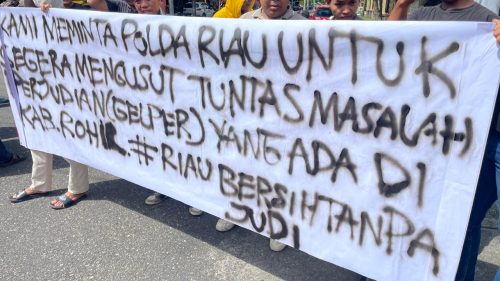 KAMI MEMINTA POLDA RIAU UNTUK
SEGERA MENGUSUT TUNTAS MASALAH
PERJUDIAN (GELPER) YANG ADA DI
KAB. ROHIL. #RIAU BERSIH TANPA
JUDI